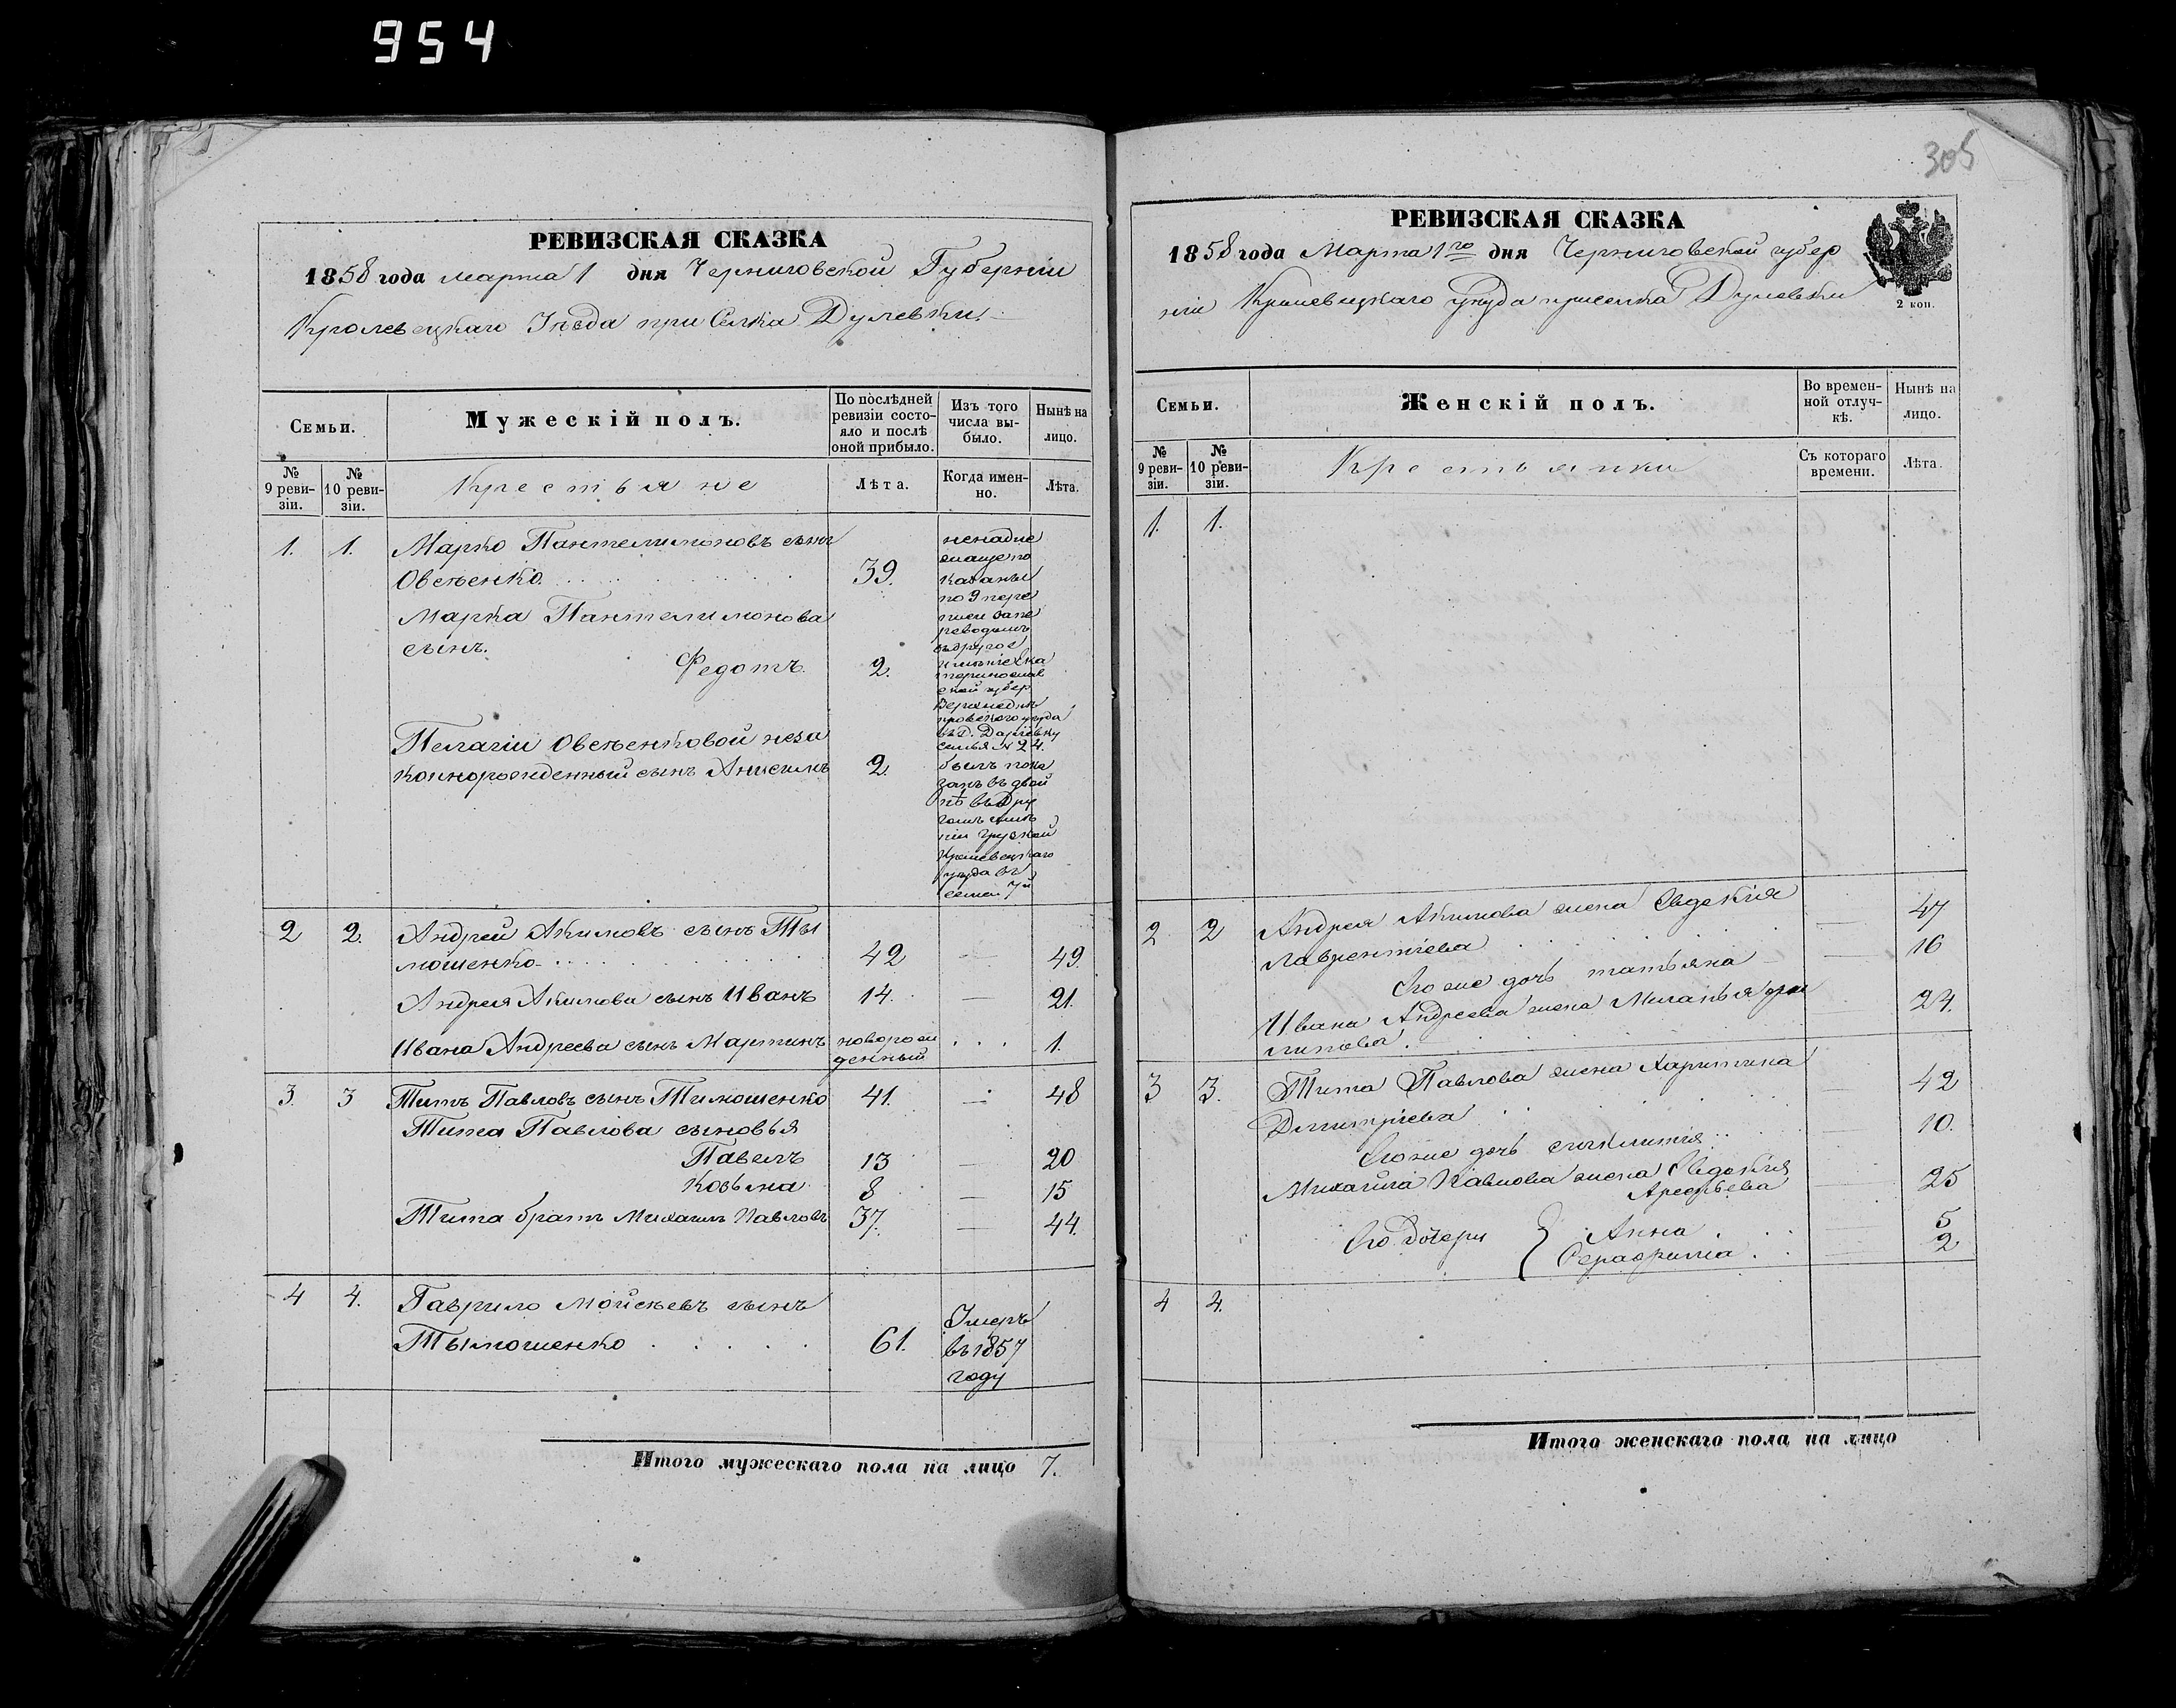 954
305
РЕВИЗСКАЯ СКАЗКА
1858 года марта 1 дня Черниговской Губерніи
Кролевецкаго Уѣзда при Селка Дулевки.
Семьи.
Мужескій полъ.
По послѣдней ревизіи состо-
яло и послѣ
оной прибыло.
Изъ того
числа вы-
было.
Нынѣ на
лицо.
№
9 реви-
зіи.
№
10 реви-
зіи.
Крестьяне
Лѣта.
Когда имен-
но.
Лѣта.
1. 1. Марко Пантелимоновъ сынъ
Овсѣенко 39.
Марка Пантелимонова
сынъ.
Федотъ. 2.
Пелагіи Овсѣенковой неза
коннорожденный сынъ Анисимъ 2.
по 9 пере
въ другое
семья № 24.
былъ пока
занъ въ двой
нѣ въ Дру
Кролевецкаго
уѣзда въ
2 2. Андрей Акимовъ сынъ Ты
мошенко 42 — 49.
Андрея Акимова сынъ Иванъ 14. — 21.
Ивана Андреева сынъ Мартинъ новорож
денный 1.
3. 3 Титъ Павловъ сынъ Тимошенко 41. — 48
Тита Павлова сыновья
Павелъ 13 — 20
Козьма 8 — 15
Тита братъ Михаилъ Павловъ 37. — 44.
4 4. Гаврило Мойсѣевъ сынъ
Тымошенко 61.
Умеръ
въ 1857
году
Итого мужескаго пола на лицо 7.
РЕВИЗСКАЯ СКАЗКА
1858 года Марта 1го дня Черниговской губер
ніи Кролевецкаго уѣзда приселка Дулевки
2 коп.
Семьи.
Женскій полъ.
Во времен-
ной отлуч-
кѣ.
Нынѣ на
лицо.
№
9 реви-
зіи.
№
10 реви-
зіи.
Крестьянки
Съ котораго
времени.
Лѣта.
1. 1.
2 2 Андрея Акимова жена Евдокія
Лаврентіева — 47
Его же дочь татьяна — 16
Ивана Андреева жена Миланья
24.
3 3. Тита Павлова жена Харитина
Димитріева — 42
Его же дочь — 10.
Михаила Павлова жена Евдокія
Арефьева — 25
Его Дочери { Анна 5
Серафима 2
4 4.
Итого женскаго пола на лицо